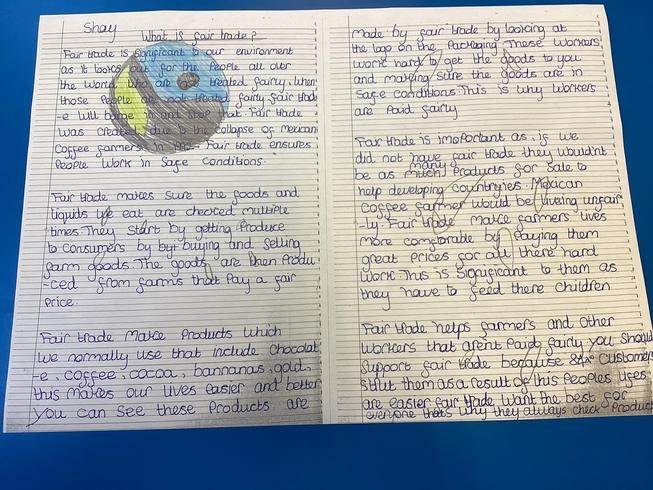 Shay
What is fair trade?
Fair trade is significant to our environment
as it looks out for the People all over
the World who are treated fairly, when
those People are not treated fairly fair trad
-e will barge in and stop that. Fair trade
was created due to the collapse of mexican
Coffee farmers in Fair trade ensures
People Work in Safe Conditions.
Fair trade makes Sure the goods and
liquids we eat are checked multiple
times. They Start by getting Produce
to Consumers by buying and Selling
farm goods. The goods are then Produ
-ced from farms that Pay a fair
Price.
Fair trade Make Products which
we normally use that include Chocolat
-e, coffee, cocoa, bannanas, gold,
this makes our lives easier and better
You can See these Products are
made by fair trade by looking at
the logo on the Packaging These Workers
work hard to get the goods to you
and making sure the goods are in
Safe Conditions. This is why Workers
are Paid fairly
Fair trade is important as, if we
did not have fair trade they wouldn't
be as many Products for Sale to
help developing countryies. Mexican
Coffee farmer would be liveing unfair
-ly. Fair trade make farmers lives
more comfortable by Paying them
great Prices for all there hard
Work. This is significant to them as
they have to feed there Children
Fair trade helps farmers and Other
Workers that arent Paid fairly you Should
Support fair trade because Customers
them as a result of this Peoples lifes
are easier fair trade Want the best for
everyone thats why they always check Product